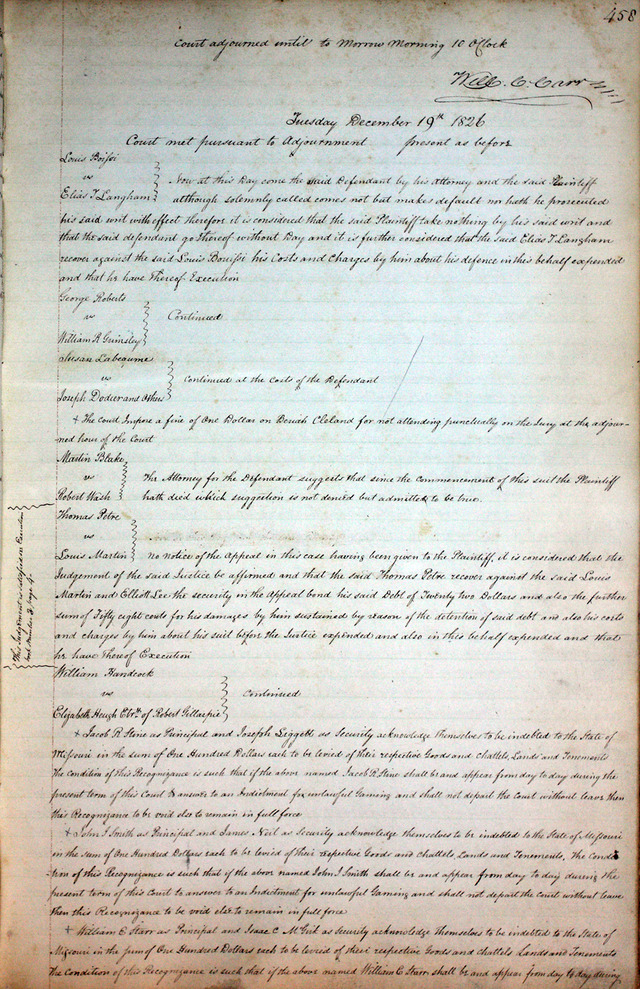 458
Court adjourned until to Morrow Morning 10 OClock
Will. C. Carr
Tuesday December 19th 1826
Court met pursuant to Adjournment present as before
Louis Boissi
vs
Elias T Langham
Now at this Day come the said Defendant by his Attorney and the said Plaintiff
although solemnly called comes not but makes default nor hath he prosecuted
his said writ with effect therefore it is considered that the said Plaintiff take nothing by his said writ and
that the said defendant go thereof without Day and it is further considered that the said Elias T. Langham
recover against the said Louis Bouissi his Costs and Charges by him about his defence in this behalf expended
and that he have Thereof Execution
George Roberts
vs
William R Grimsley
Continued
Susan Labeaume
vs
Joseph Doduer and Others
Continued at the Costs of the Defendant
+ The Court Impose a fine of One Dollar on Beriah Cleland for not attending punctually on the Jury at the adjour-
ned hour of the Court
Martin Blake
vs
Robert Wash
The Attorney for the Defendant suggests that since the commencement of this suit the Plaintiff
hath died which suggestion is not denied but admitted to be true.
Thomas Petre
vs
Louis Martin
no notice of the appeal in this case having been given to the Plaintiff, it is considered that the
Judgement of the said Justice be affirmed and that the said Thomas Petre recover against the said Louis
Martin and Elliott Lee the security in the Appeal bond his said Debt of Twenty two Dollars and also the further
sum of Fifty eight cents for his damages by him sustained by reason of the detention of said debt and also his costs
and charges by him about his suit before the Justice expended and also in this behalf expended and that
he have Thereof Execution
This Judgment is satisfied on Execution
William Handcock
vs
Elizabeth Heugh Ebtx. of Robert Gillaspie
Continued
+ Jacob R Stine as Principal and Joseph Liggett as Security acknowledge themselves to be indebted to the State of
Missouri in the sum of One Hundred Dollars each to be levied of their respective Goods and chattels, Lands and Tenements
The condition of this Recognizance is such that if the above named Jacob R. Stine shall be and appear from day to day during the
present term of this Court to answer to an Indictment for unlawful Gaming and shall not depart the court without leave then
this Recognizance to be void else to remain in full force
+ John J Smith as Principal and James Neil as Security acknowledge themselves to be indebted to the State of Missouri
in the sum of One Hundred Dollars each to be levied of their respective Goods and chattels, Lands and Tenements, The Condi
tion of this Recognizance is such that if the above named John J Smith shall be and appear from day to day during the
present term of this Court to answer to an Indictment for unlawful Gaming and shall not depart the court without leave
then this Recognizance to be void else to remain in full force
+ William C Starr as Principal and Isaac C McGirk as security acknowledge themselves to be indebted to the State of
Missouri in the sum of One Hundred Dollars each to be levied of their respective Goods and chattels Lands and Tenements
The condition of this Recognizance is such that if the above named William C Starr shall be and appear from day to day during